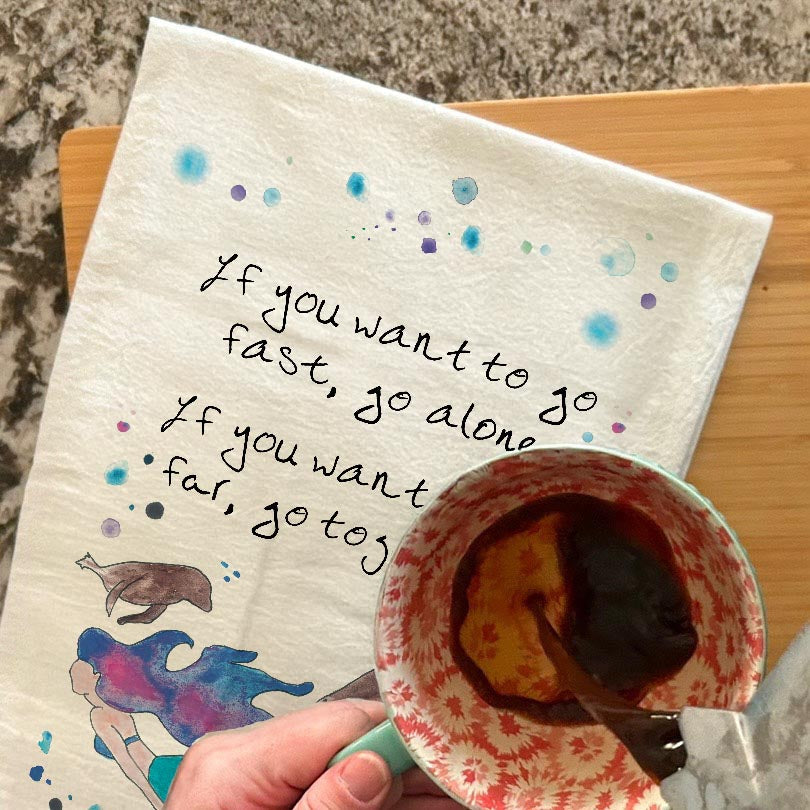 If you want to go
fast, go alone
If you want
far, go tog